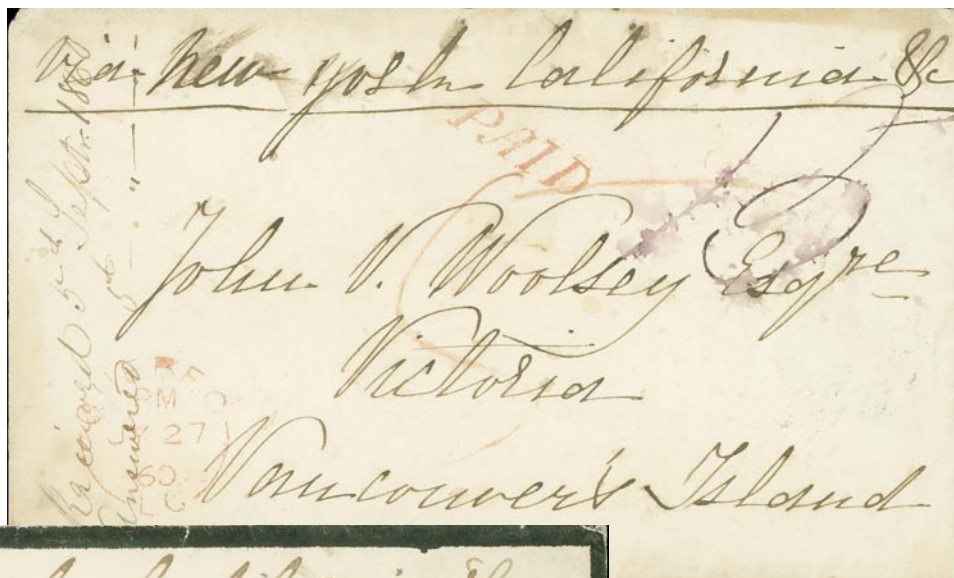 Via New York California &c
PAID
John V. Woolsey Esqre
Victoria
Vancouver's Island
Received 5th Septr. 1860
Answered 5th " "
27
60